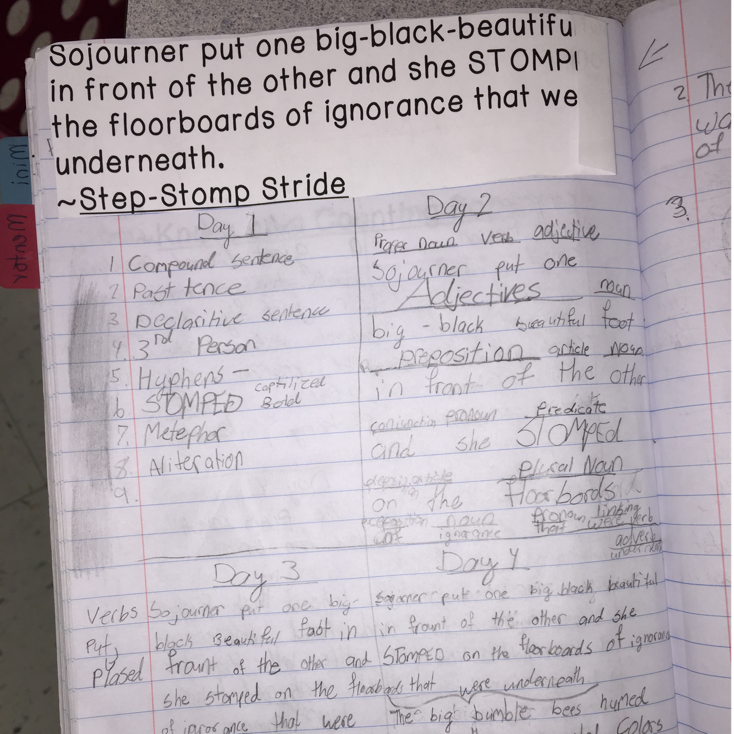 Sojourner put one big-black-beautifu
in front of the other and she STOMP
the floorboards of ignorance that we
underneath.
~Step-Stomp Stride
Mini
Mentor
Day 1
1 Compound sentence
2 Past tence
3 Declaritive sentence
4. 3rd Person
5. Hyphens -
6 STOMPED captilized Bold
7. Metephor
8. Aliteration
9.
Day 2
Proper noun verb adjective
Sojourner put one
Adjectives noun
big - black beautiful foot
preposition article Noun
in front of the other
conjunction pronoun Predicate
and she STOMPED
Plural Noun
on the floorbords
noun Pronoun linking verb
of ignorance that were
adverb
Day 3
Verbs Sojourner put one big
Put, black Beautiful foot in
Plased frount of the other and
she stomped on the floorbords
of ignorance that were
Day 4
Sojourner put one big black beautiful
in frount of the other and she
STOMPED on the floorboards of ignoran
that were underneath
The big bumble bees humed
Colors
2 The
wa
of
3.